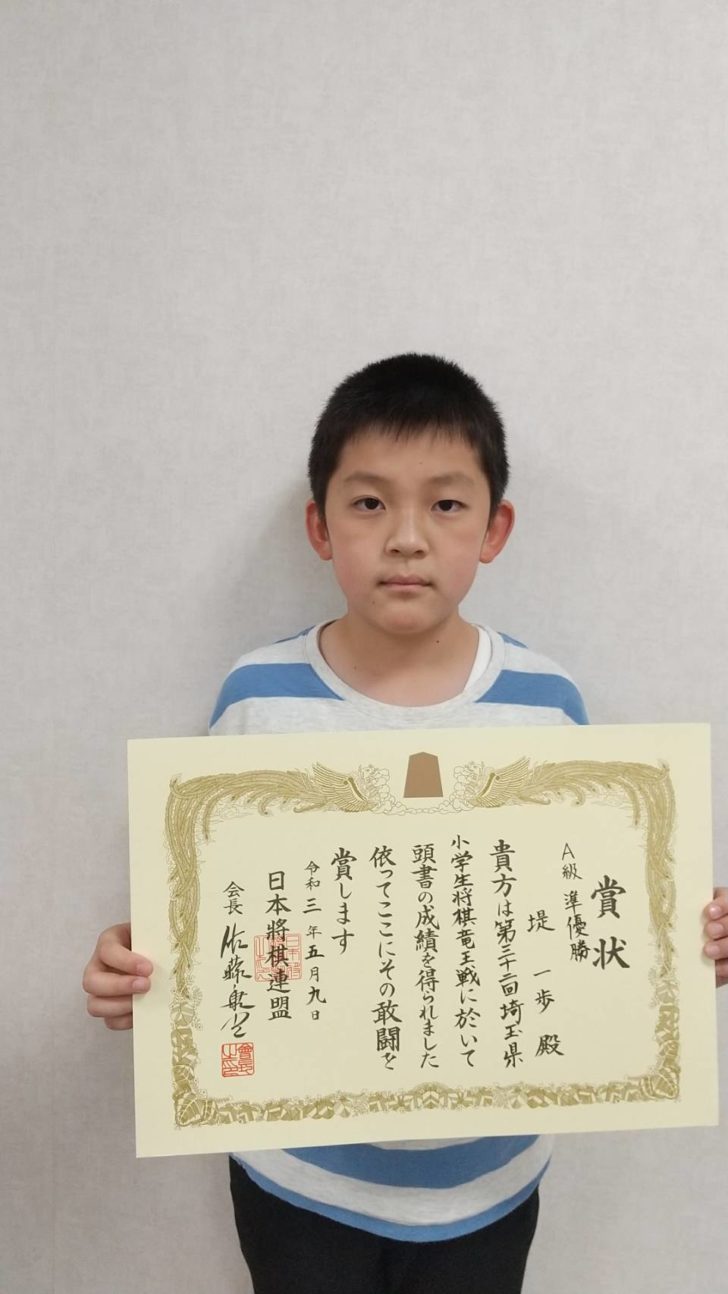 賞状
A級 準優勝
堤 一歩 殿
貴方は第三十二回埼玉県
小学生将棋竜王戦に於いて
頭書の成績を得られました
依ってここにその敢闘を
賞します
令和三年五月九日
日本将棋連盟
会長 佐藤康光